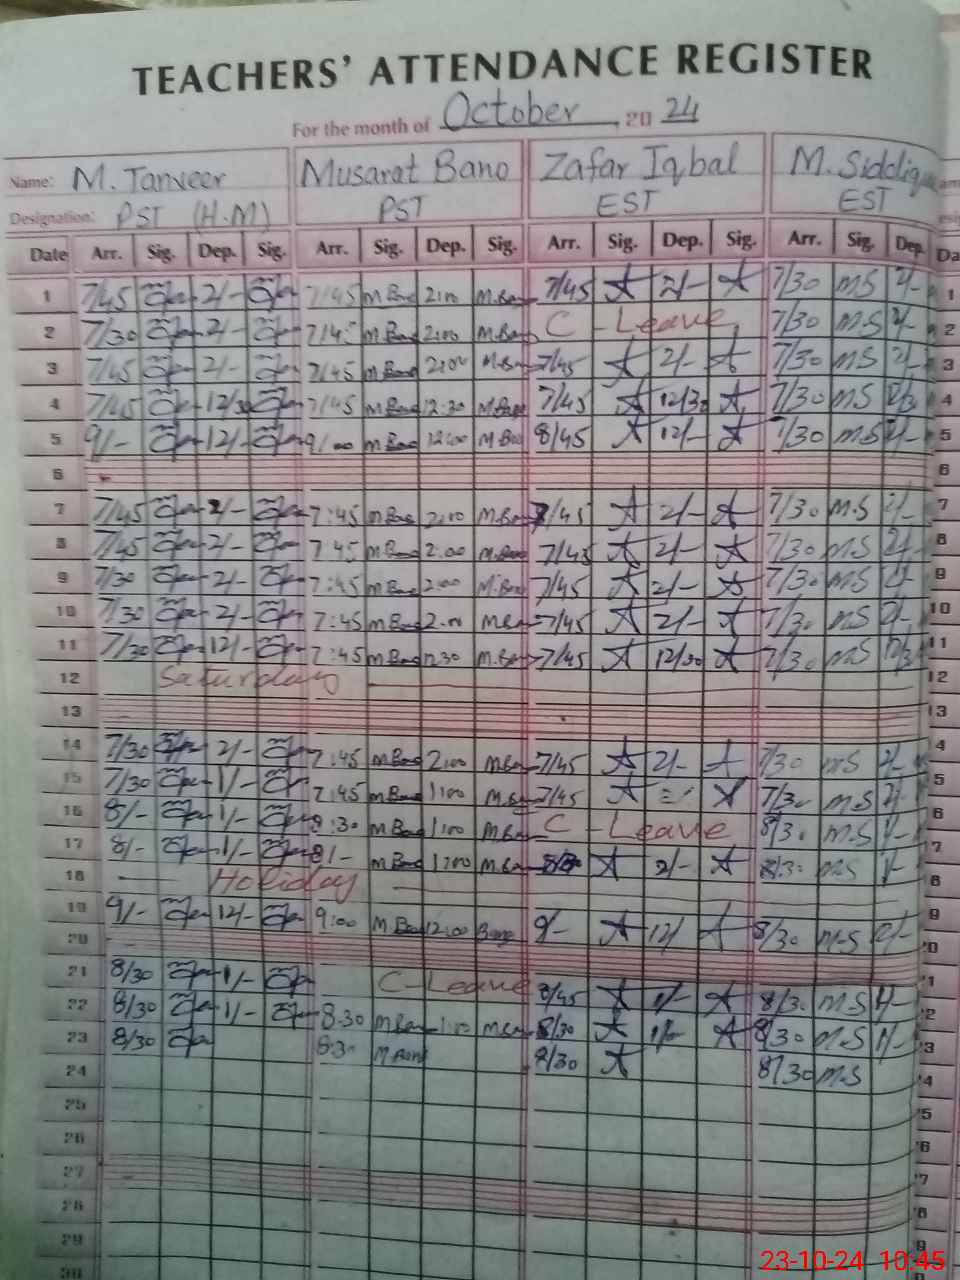 TEACHERS' ATTENDANCE REGISTER
For the month of October, 2024
Name: M. Tanveer Musarat Bano Zafar Iqbal M. Siddique
Designation: PST (H.M) PST EST EST
Date Arr. Sig. Dep. Sig. Arr. Sig. Dep. Sig. Arr. Sig. Dep. Sig. Arr. Sig. Dep. Da
1 7/45 2/- 7/45 M Bano 2:00 M.Bano 7/45 2/- 7/30 M.S 2/- 1
2 7/30 2/- 7/45 M Bano 2:00 M.Bano C - Leave 7/30 M.S 2/- 2
3 7/45 2/- 7/45 M Bano 2:00 M.Bano 7/45 2/- 7/30 M.S 2/- 3
4 7/45 12/30 7/45 M Bano 12:30 M.Bano 7/45 12/30 7/30 M.S 4
5 9/- 12/- 9/00 M Bano 12:00 M.Bano 8/45 12/- 7/30 M.S 5
6 6
7 7/45 2/- 7:45 M Bano 2:00 M.Bano 7/45 2/- 7/30 M.S 2/- 7
8 7/45 2/- 7:45 M Bano 2:00 M.Bano 7/45 2/- 7/30 M.S 2/- 8
9 7/30 2/- 7:45 M Bano 2:00 M.Bano 7/45 2/- 7/30 M.S 2/- 9
10 7/30 2/- 7:45 M Bano 2:00 M.Bano 7/45 2/- 7/30 M.S 2/- 10
11 7/30 12/- 7:45 M Bano 12:30 M.Bano 7/45 12/30 7/30 M.S 12/30 11
12 Saturday 12
13 13
14 7/30 2/- 7:45 M Bano 2:00 M.Bano 7/45 2/- 7/30 M.S 2/- 4
15 7/30 1/- 7:45 M Bano 1:00 M.Bano 7/45 7/30 M.S 5
16 8/- 1/- 8:30 M Bano 1:00 M.Bano C - Leave 8/30 M.S 1/- 6
17 8/- 1/- 8/- M Bano 1:00 M.Bano 2/- 8:30 M.S 1/- 7
18 Holiday 8
19 9/- 12/- 9:00 M Bano 12:00 Bano 9/- 12/ 8/30 M.S 9
20 20
21 8/30 1/- C - Leave 8/45 1/- 8/30 M.S 1/- 1
22 8/30 1/- 8:30 M Bano 1:00 M.Bano 8/30 1/- 8/30 M.S 1/- 2
23 8/30 8:30 M.Bano 8/30 8/30 M.S 3
24 4
25 5
26 6
27 7
28 8
29 9
30
23-10-24 10:45